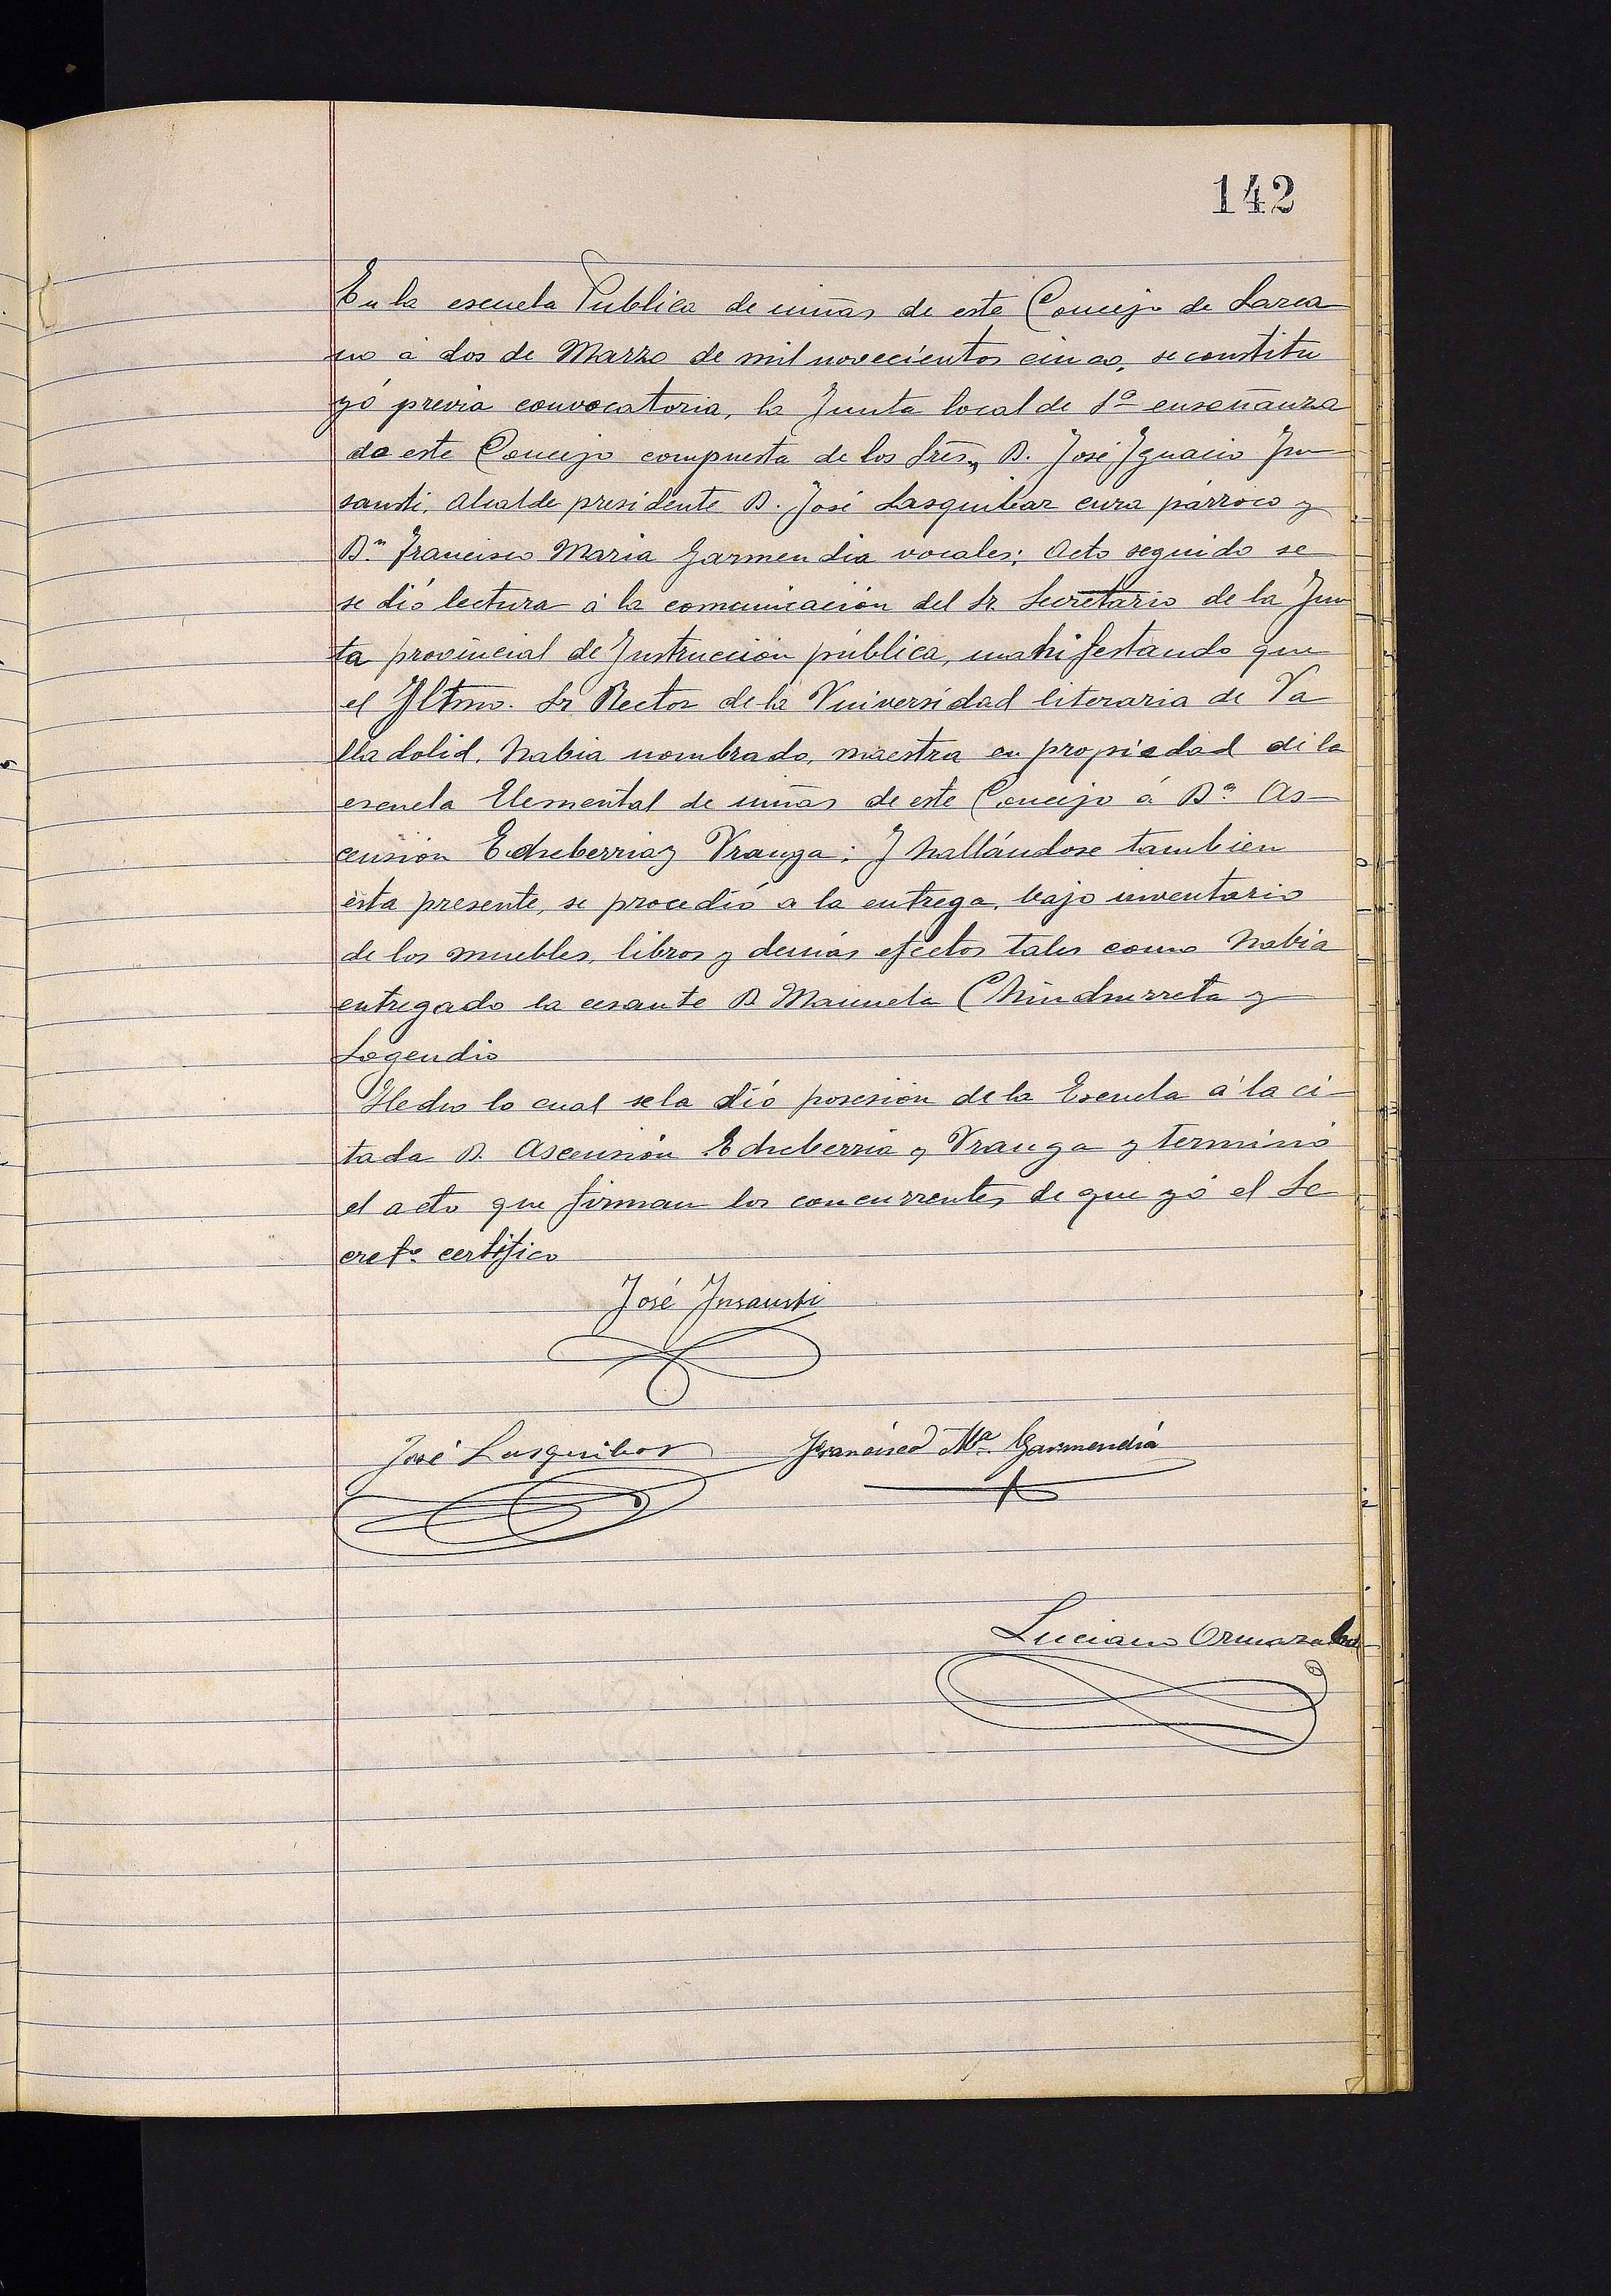 142
En la escuela Publica de niñas de este Concejo de Lazca
no á dos de Marzo de mil novecientos cinco, se constitu
yó previa convocatoria, la Junta local de 1ª enseñanza
de este Concejo compuesta de los Sres, D. José Ignacio In
sausti, Alcalde presidente D. José Lasquibar cura párroco y
Dn Francisco Maria Garmendia vocales; Acto seguido se
se dió lectura á la comunicación del Sr. Secretario de la Jun
ta provincial de Instrucción pública, manifestando que
el Iltmo. Sr. Rector de la Universidad literaria de Va
lladolid, habia nombrado, maestra en propiedad de la
escuela Elemental de niñas de este Concejo á Dª As-
censión Echeberria y Uranga: Y hallándose tambien
ésta presente, se procedió a la entrega, bajo inventario
de los muebles, libros y demás efectos tales como habia
entregado la cesante D Manuela Chindurreta y
Legendio
Hecho lo cual se la dió posesión de la Escuela á la ci-
tada D. Ascensión Echeberria y Uranga y terminó
el acto que firman los concurrentes, de que yó el Se
cretº certifico
José Insausti
José Lasquibar Francisco Mª Garmendia
Luciano Ormazabal